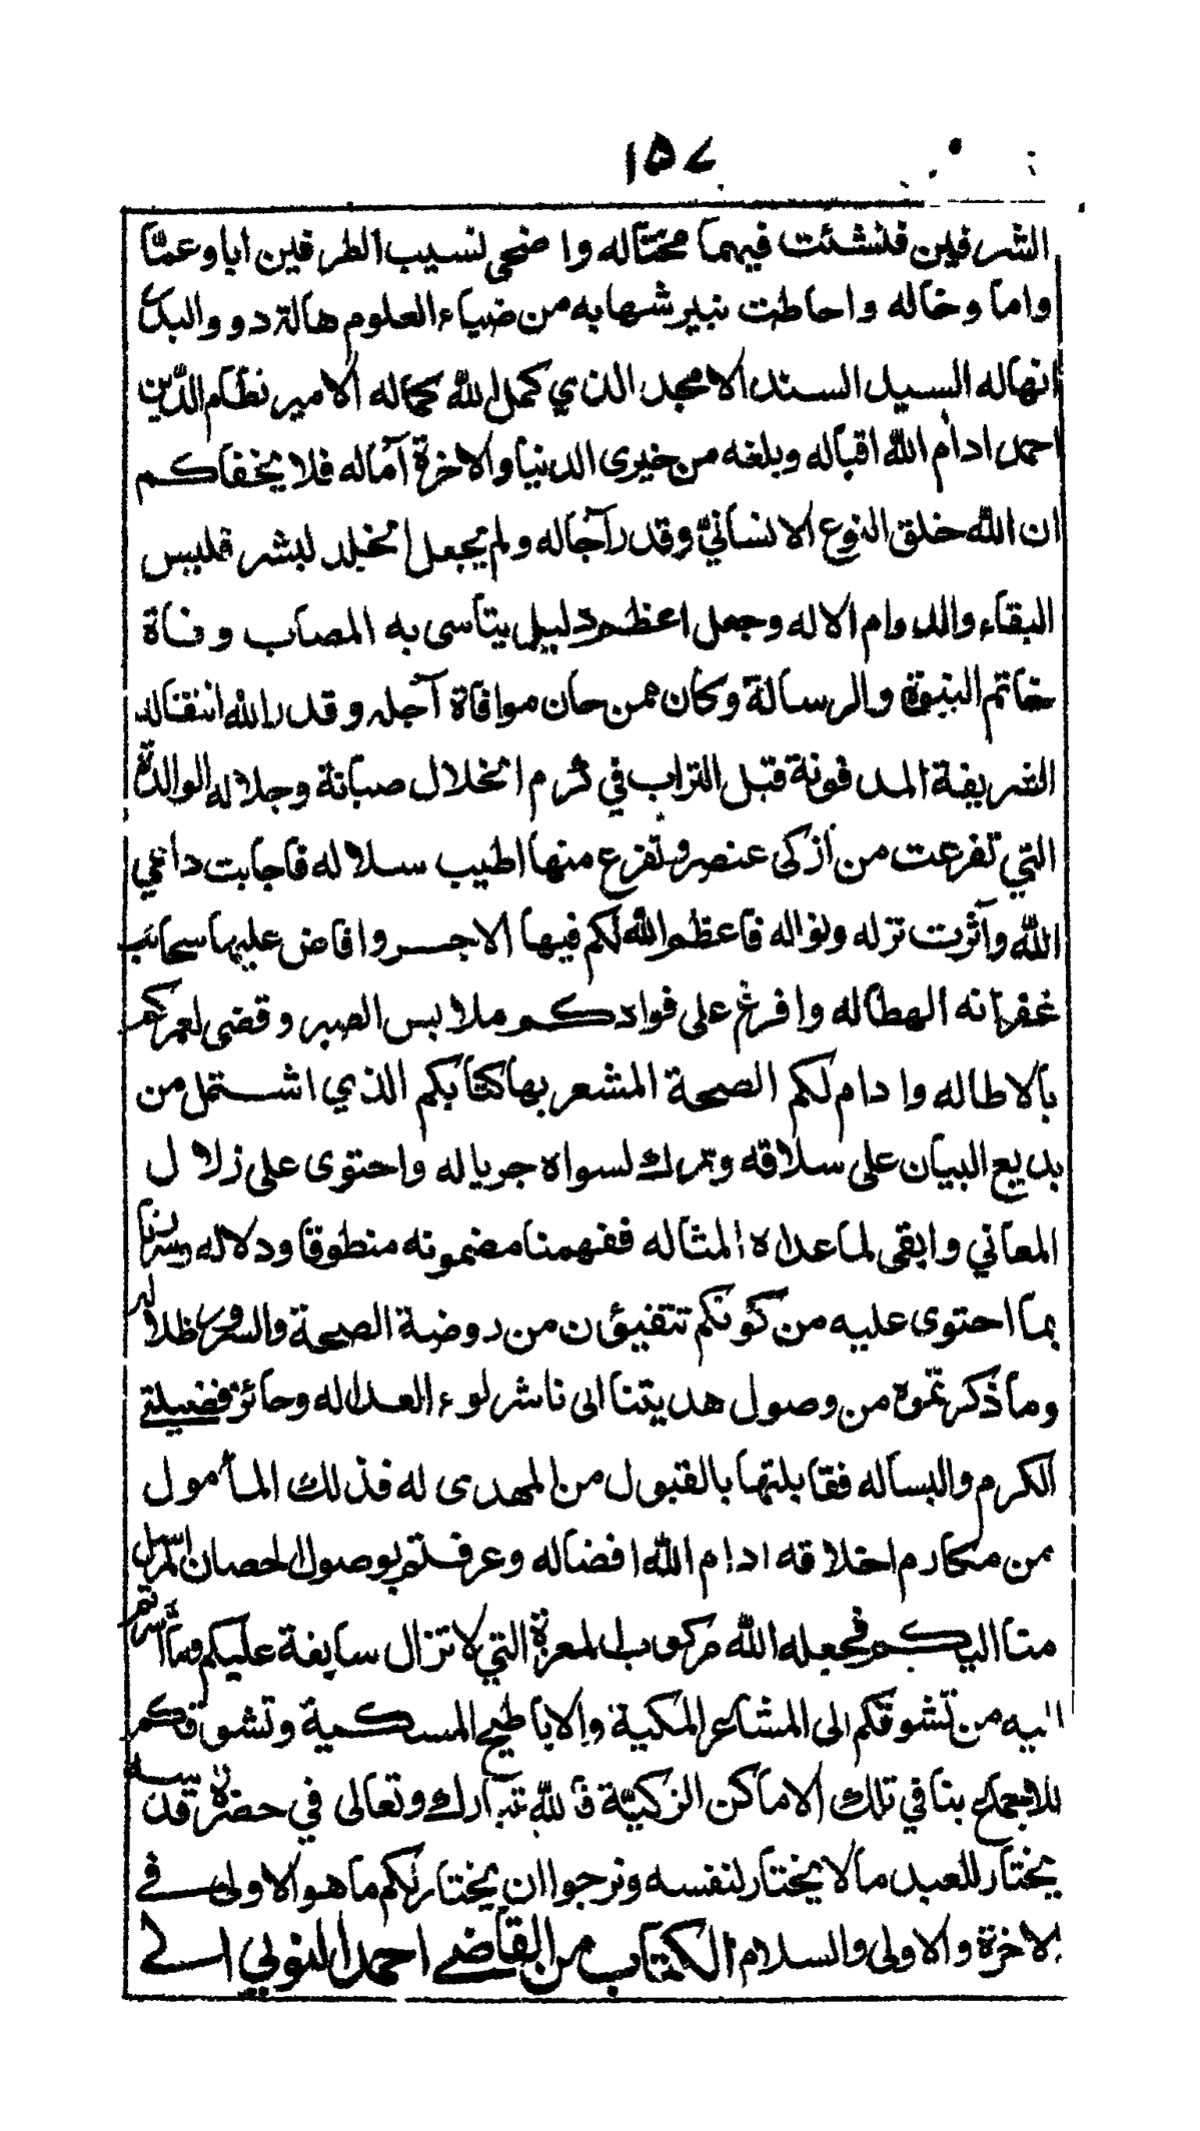 ١٥٧
الشرفين فنشئت فيهما مختاله واضحى لنسيب الطرفين ابا وعمّا
واما وخاله واحاطت بنير شهابه من ضياء العلوم هالة دو والبكا
انهاله السيد السند الامجد الذي كمل الله كماله الامير نظام الدّين
احمد ادام الله اقباله وبلغه من خيرى الدنيا والاخرة آماله فلا يخفاكم
ان الله خلق النوع الانسانيّ وقدر آجاله ولم يجعل الخلد لبشر فليس
البقاء والدوام الا له وجعل اعظم دليل يتاسى به المصاب وفاة
خاتم النبوة والرسالة وكان ممن حان موافاة آجله وقدر الله انتقاله
الشريفة المدفونة قبل التراب في كرم الخلال صيانة وجلاله الوالدة
التي تفرعت من ازكى عنصر وتفرع منها اطيب سلاله فاجابت داعي
الله وآثرت نزله ونواله فاعظم الله لكم فيها الاجر وافاض عليها سحائب
غفرانه الهطاله وافرغ على فوادكم ملابس الصبر وقضى لعمركم
بالاطاله وادام لكم الصحة المشعر بها كتابكم الذي اشتمل من
بديع البيان على سلافه وترك لسواه جرياله واحتوى على زلال
المعاني وابقى لما عداه المثاله ففهمنا مضمونه منطوقا ودلاله وسرنا
بما احتوى عليه من كونكم تتفيئون من روضة الصحة والسرور ظلاله
وما ذكرتموه من وصول هديتنا الى ناشر لوء العداله وحائز فضيلتي
الكرم والبساله فقابلتها بالقبول من المهدى له فذلك المأمول
من مكارم اخلاقه ادام الله افضاله وعرفتم بوصول الحصان المرسل
منا اليكم فجعله الله مركوب المعرة التي لا تزال سابغة عليكم وما اشرتم
اليه من تشوقكم الى المشاعر المكية والاباطيح المسكية وتشوقكم
للاجتماع بنا في تلك الاماكن الزكيّة فالله تبارك وتعالى في حضرة قدسه
يختار للعبد ما لا يختار لنفسه ونرجوا ان يختار لكم ما هو الاولى في
الاخرة والاولى والسلام الكتاب من القاضي احمد الى